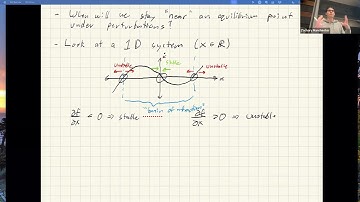 - When will we stay "near" an equilibrium point
under perturbations?
- Look at a 1D system (x ∈ ℝ)
ẋ
unstable stable unstable
x
"basin of attraction"
∂f/∂x < 0 ⇒ stable ∂f/∂x > 0 ⇒ unstable